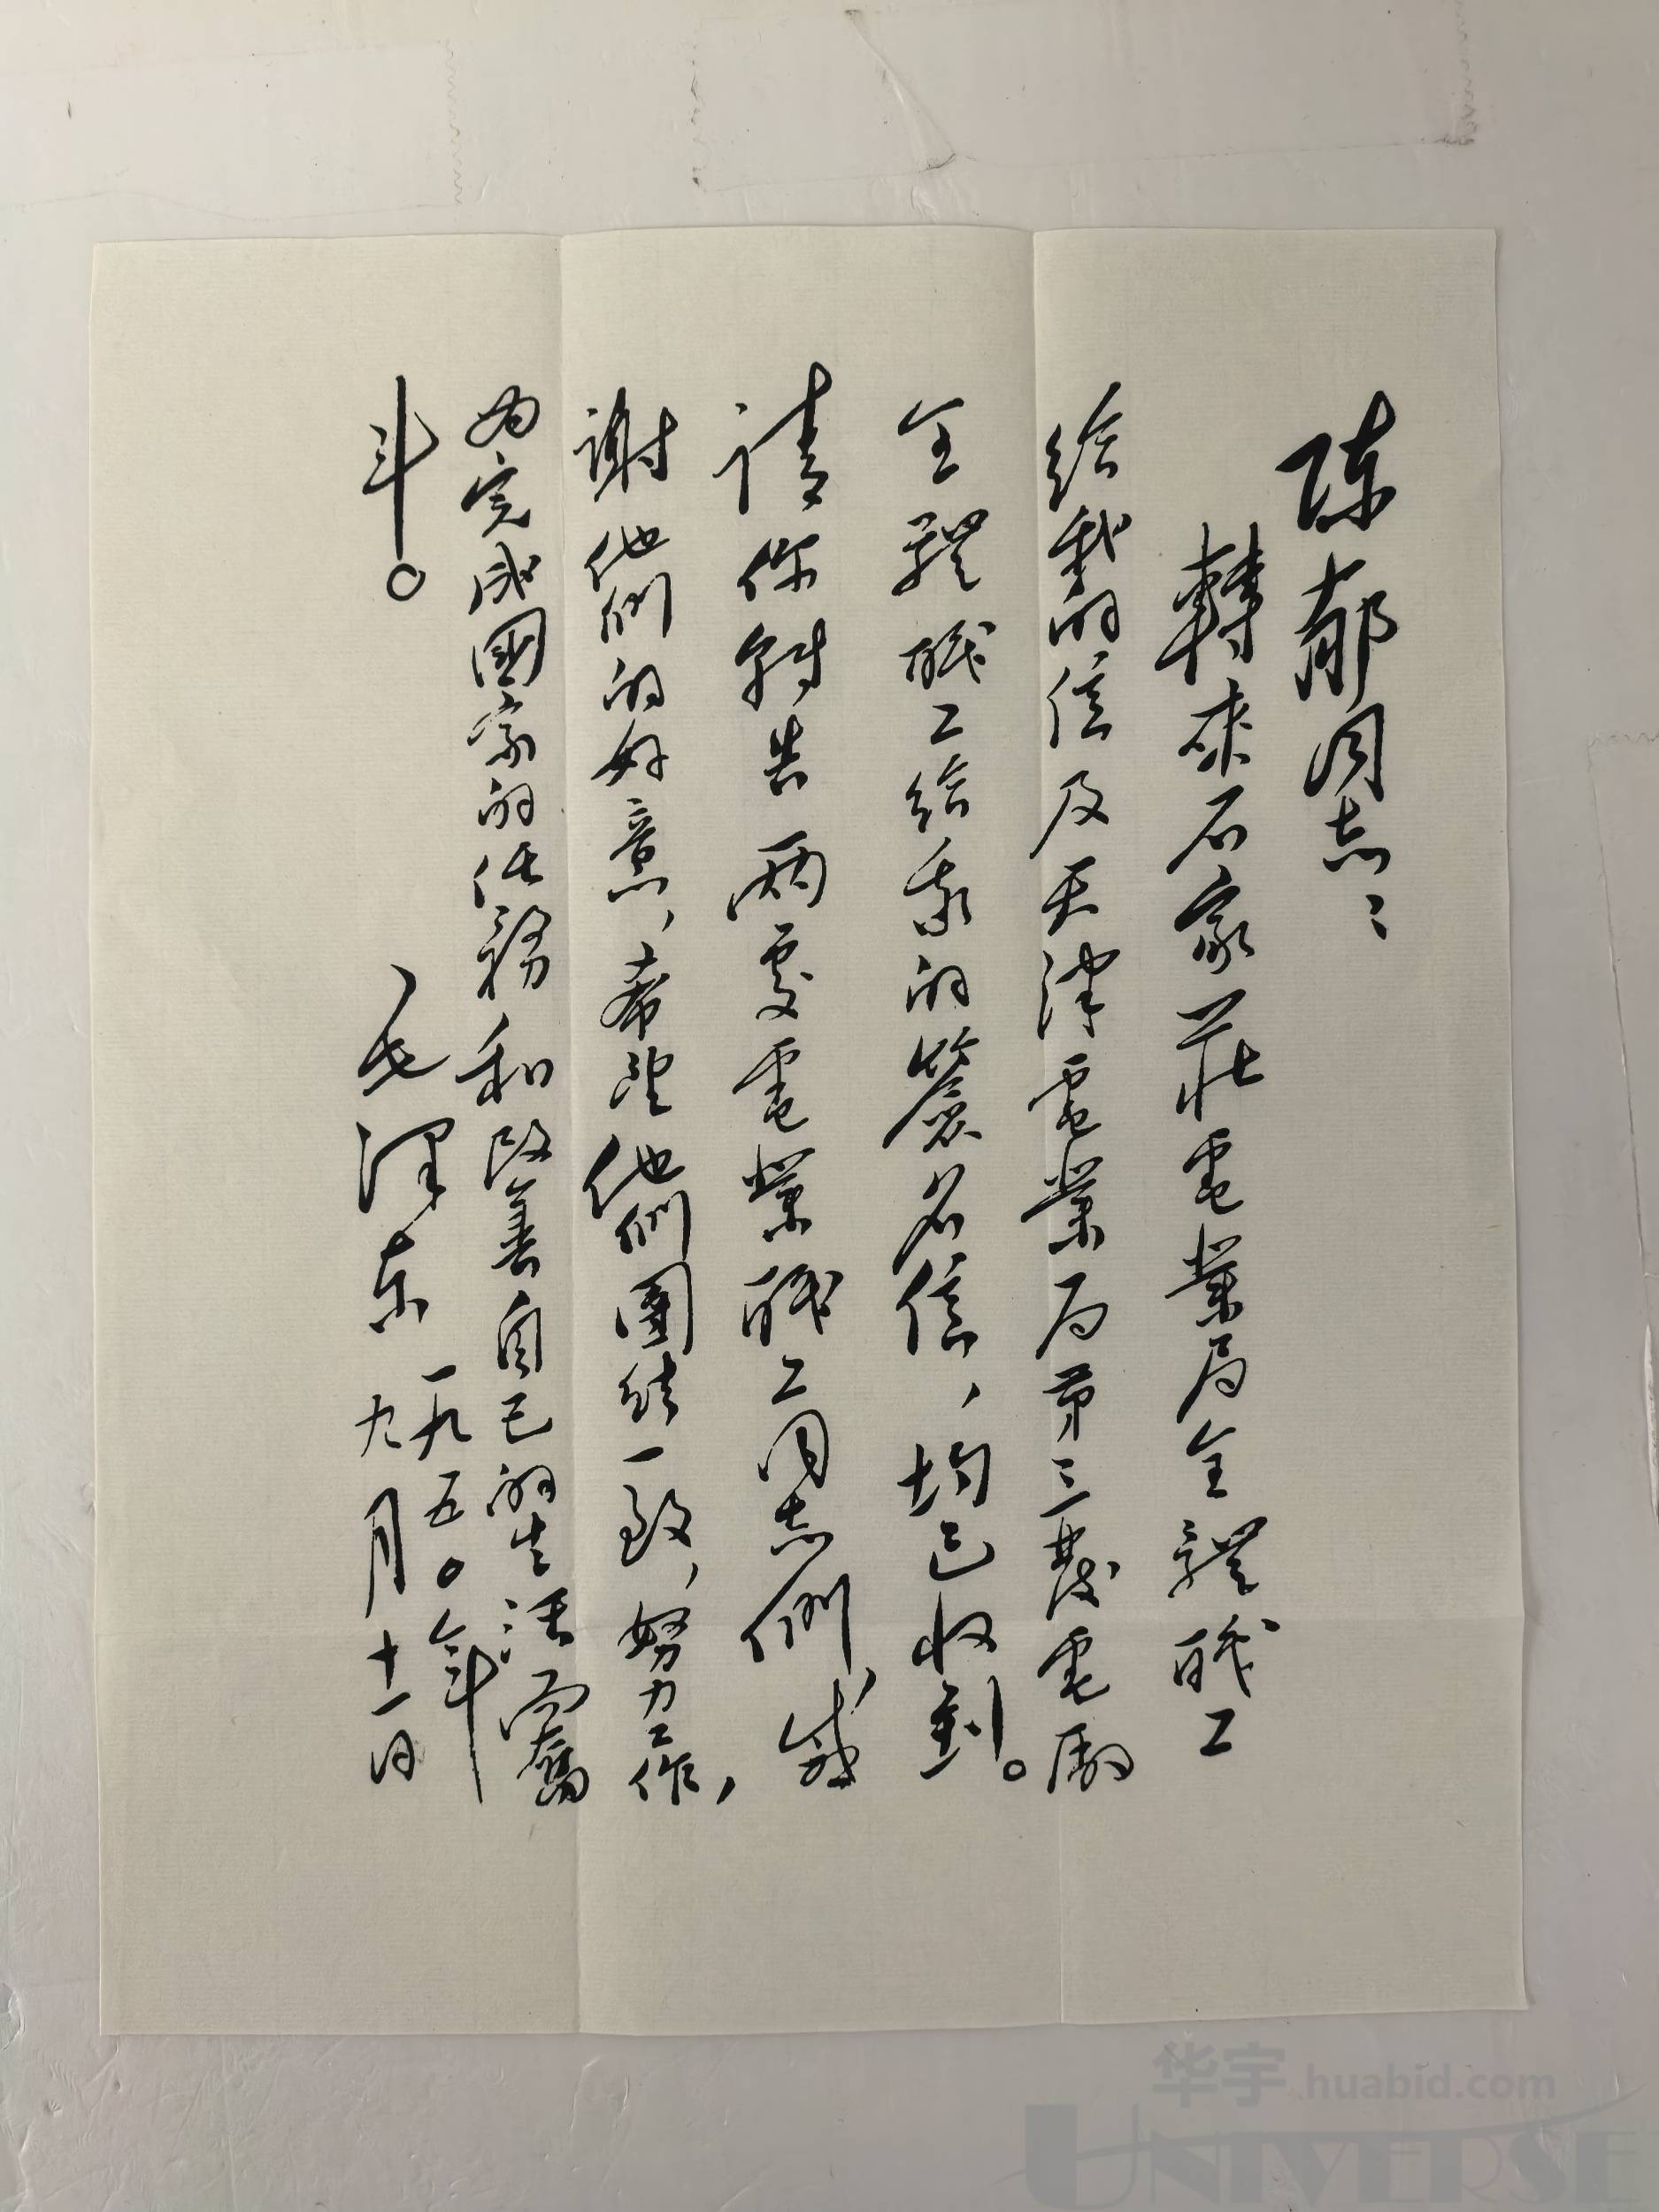 陈郁同志：
轉来石家莊電業局全體職工
给我的信及天津電業局第三發電廠
全體職工给我的簽名信，均已收到。
请你转告两處電業職工同志们，感
谢他们的好意，希望他们團结一致，努力工作，
为完成國家的任務和改善自己的生活而奮
斗。
毛泽东
一九五〇年
九月十一日
华宇 huabid.com
UNIVERSE